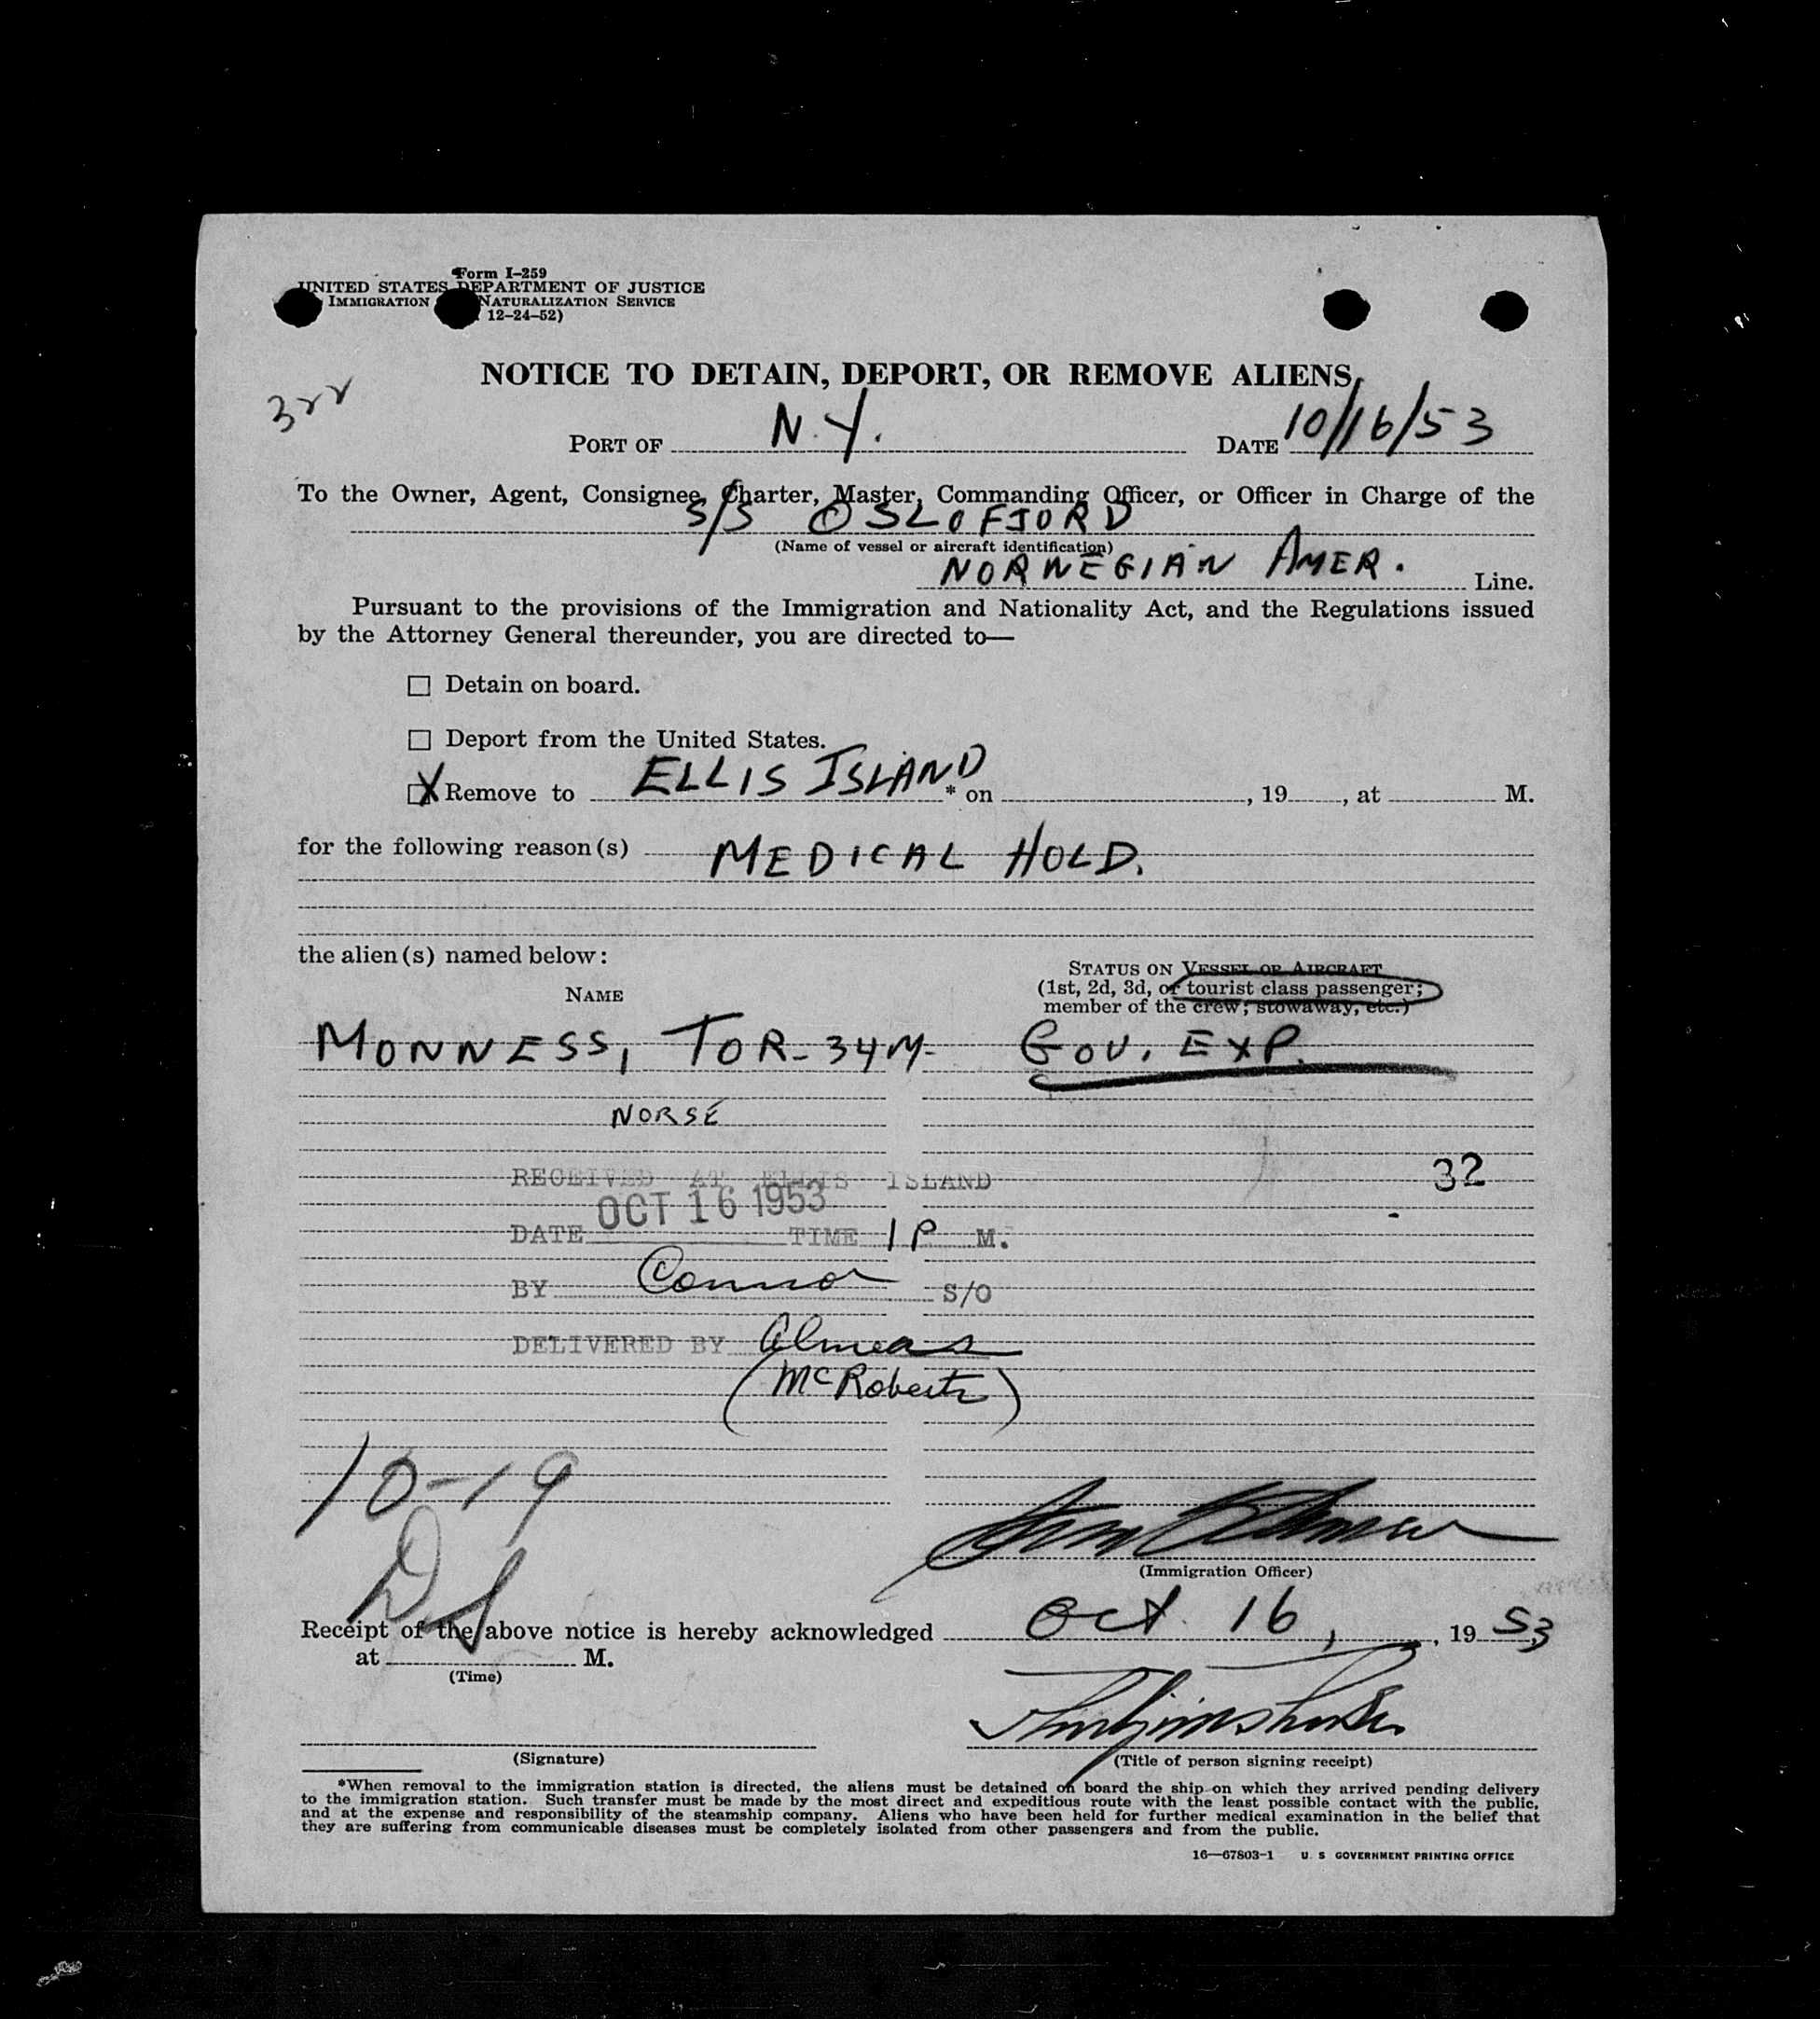 Form I-259
UNITED STATES DEPARTMENT OF JUSTICE
IMMIGRATION NATURALIZATION SERVICE
12-24-52)
NOTICE TO DETAIN, DEPORT, OR REMOVE ALIENS
PORT OF N.Y. DATE 10/16/53
To the Owner, Agent, Consignee, Charter, Master, Commanding Officer, or Officer in Charge of the
S/S OSLOFJORD
(Name of vessel or aircraft identification)
NORWEGIAN AMER. Line.
Pursuant to the provisions of the Immigration and Nationality Act, and the Regulations issued
by the Attorney General thereunder, you are directed to—
☐ Detain on board.
☐ Deport from the United States.
X Remove to ELLIS ISLAND * on , 19 , at M.
for the following reason(s) MEDICAL HOLD.
the alien(s) named below:
STATUS ON VESSEL OR AIRCRAFT
NAME (1st, 2d, 3d, or tourist class passenger;
member of the crew; stowaway, etc.)
MONNESS, TOR - 34 M - GOV. EXP.
NORSE
RECEIVED AT ELLIS ISLAND 32
OCT 16 1953
DATE TIME 1 P M.
BY Connor S/O
DELIVERED BY
(McRoberts)
10-19
(Immigration Officer)
Receipt of the above notice is hereby acknowledged Oct. 16, , 19 53
at M.
(Time)
(Signature) (Title of person signing receipt)
*When removal to the immigration station is directed, the aliens must be detained on board the ship on which they arrived pending delivery
to the immigration station. Such transfer must be made by the most direct and expeditious route with the least possible contact with the public,
and at the expense and responsibility of the steamship company. Aliens who have been held for further medical examination in the belief that
they are suffering from communicable diseases must be completely isolated from other passengers and from the public.
16—67803-1 U. S GOVERNMENT PRINTING OFFICE